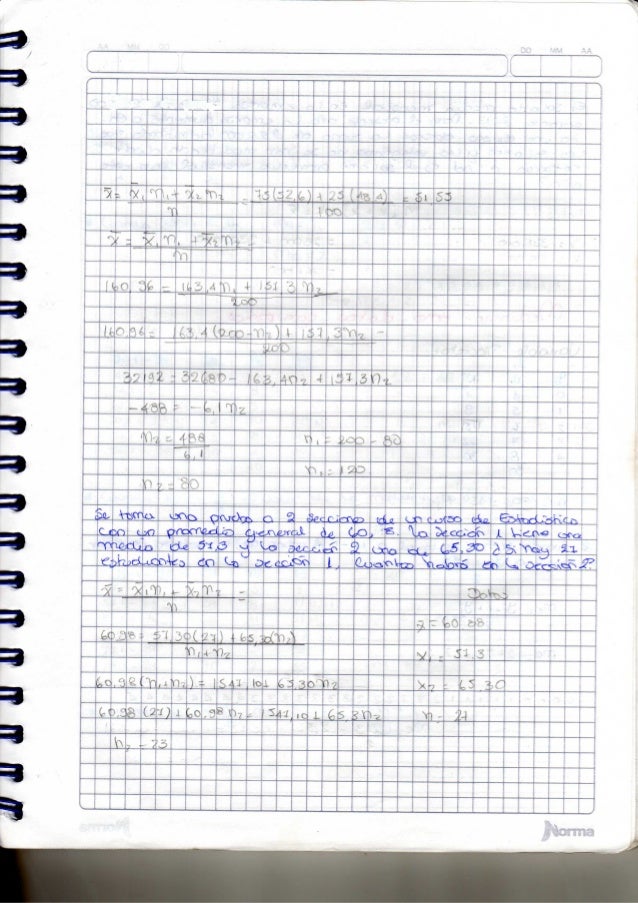 DD MM AA
x̄ = x̄₁ n₁ + x̄₂ n₂ / n = 75(52,6) + 25(48.4) / 100 = 51,55
x̄ = x̄₁ n₁ + x̄₂ n₂ / n =
160,96 = 163,4 n₁ + 157,3 n₂ / 200
160,96 = 163,4 (200 - n₂) + 157,3 n₂ / 200 =
32192 = 32680 - 163,4 n₂ + 157,3 n₂
-488 = -6,1 n₂
n₂ = 488 / 6,1 n₁ = 200 - 80
n₁ = 120
n₂ = 80
Se toma una prueba a 2 secciones de un curso de Estadistica
con un promedio general de 60, 8. la sección 1 tiene una
media de 57,3 y la sección 2 una de 65,30 ¿Si hay 27
estudiantes en la sección 1, cuantos habrá en la sección 2?
x̄ = x̄₁ n₁ + x̄₂ n₂ / n = Datos
x̄ = 60
60.98 = 57,30(27) + 65,30(n₂) / n₁ + n₂
x₁ = 57.3
60,98 (n₁ + n₂) = 1547,10 + 65.30 n₂ x₂ = 65.30
60.98 (27) + 60,98 n₂ = 1547,10 + 65,3 n₂ n₁ = 27
n₂ = 23
Norma